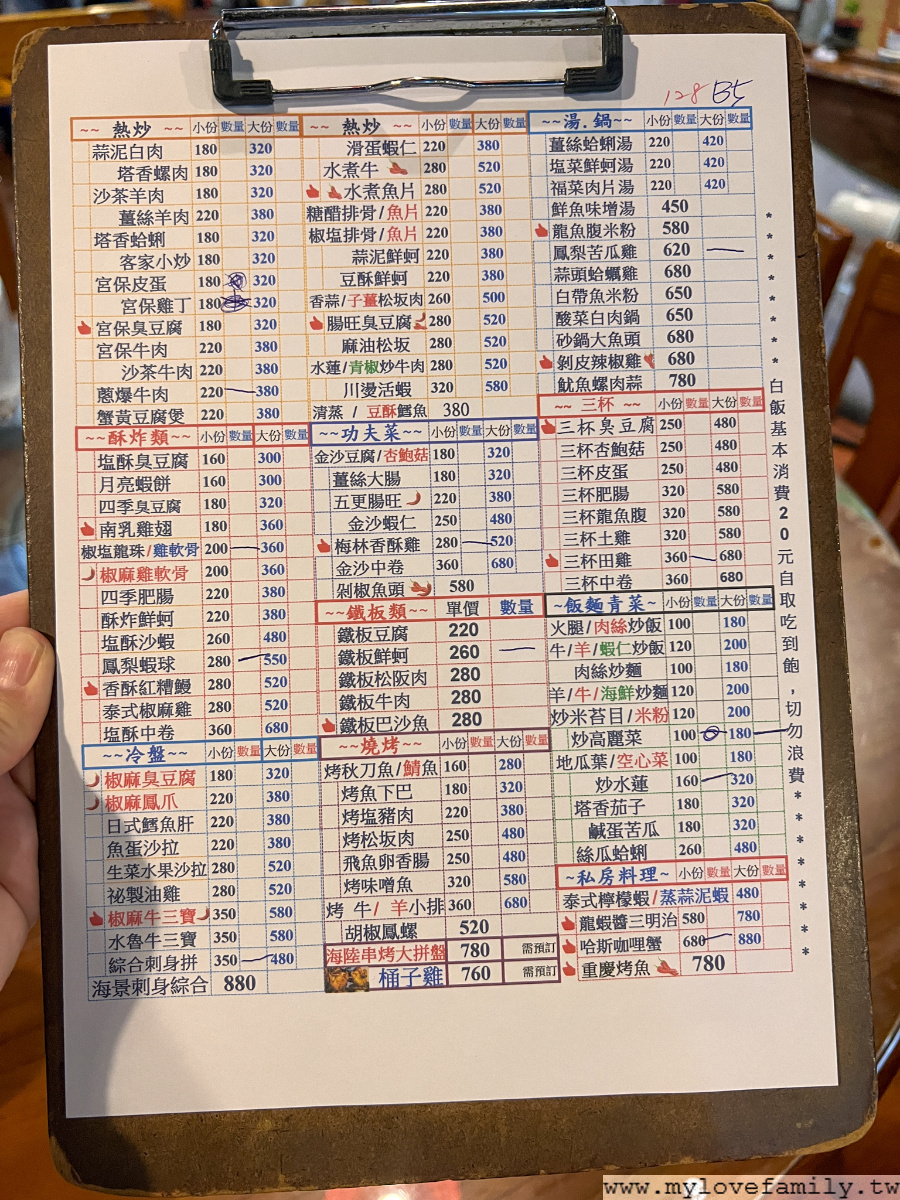 128 B5
~~ 熱炒 ~~ 小份 數量 大份 數量
蒜泥白肉 180 320
塔香螺肉 180 320
沙茶羊肉 180 320
薑絲羊肉 220 380
塔香蛤蜊 180 320
客家小炒 180 320
宮保皮蛋 180 320
宮保雞丁 180 320
宮保臭豆腐 180 320
宮保牛肉 220 380
沙茶牛肉 220 380
蔥爆牛肉 220 380
蟹黃豆腐煲 220 380
~~酥炸類~~ 小份 數量 大份 數量
塩酥臭豆腐 160 300
月亮蝦餅 160 300
四季臭豆腐 180 320
南乳雞翅 180 360
椒塩龍珠/雞軟骨 200 360
椒麻雞軟骨 200 360
四季肥腸 220 380
酥炸鮮蚵 220 380
塩酥沙蝦 260 480
鳳梨蝦球 280 550
香酥紅糟鰻 280 520
泰式椒麻雞 280 520
塩酥中卷 360 680
~~冷盤~~ 小份 數量 大份 數量
椒麻臭豆腐 180 320
椒麻鳳爪 220 380
日式鱈魚肝 220 380
魚蛋沙拉 220 380
生菜水果沙拉 280 520
祕製油雞 280 520
椒麻牛三寶 350 580
水魯牛三寶 350 580
綜合刺身拼 350 480
海景刺身綜合 880
~~ 熱炒 ~~ 小份 數量 大份 數量
滑蛋蝦仁 220 380
水煮牛 280 520
水煮魚片 280 520
糖醋排骨/魚片 220 380
椒塩排骨/魚片 220 380
蒜泥鮮蚵 220 380
豆酥鮮蚵 220 380
香蒜/子薑松坂肉 260 500
腸旺臭豆腐 280 520
麻油松坂 280 520
水蓮/青椒炒牛肉 280 520
川燙活蝦 320 580
清蒸 / 豆酥鱈魚 380
~~功夫菜~~ 小份 數量 大份 數量
金沙豆腐/杏鮑菇 180 320
薑絲大腸 180 320
五更腸旺 220 380
金沙蝦仁 250 480
梅林香酥雞 280 520
金沙中卷 360 680
剁椒魚頭 580
~~鐵板類~~ 單價 數量
鐵板豆腐 220
鐵板鮮蚵 260
鐵板松阪肉 280
鐵板牛肉 280
鐵板巴沙魚 280
~~燒烤~~ 小份 數量 大份 數量
烤秋刀魚/鯖魚 160 280
烤魚下巴 180 320
烤塩豬肉 220 380
烤松坂肉 250 480
飛魚卵香腸 250 480
烤味噌魚 320 580
烤 牛/ 羊小排 360 680
胡椒鳳螺 520
海陸串烤大拼盤 780 需預訂
桶子雞 760 需預訂
~~湯.鍋~~ 小份 數量 大份 數量
薑絲蛤蜊湯 220 420
塩菜鮮蚵湯 220 420
福菜肉片湯 220 420
鮮魚味增湯 450
龍魚腹米粉 580
鳳梨苦瓜雞 620
蒜頭蛤蠣雞 680
白帶魚米粉 650
酸菜白肉鍋 650
砂鍋大魚頭 680
剝皮辣椒雞 680
魷魚螺肉蒜 780
~~ 三杯 ~~ 小份 數量 大份 數量
三杯臭豆腐 250 480
三杯杏鮑菇 250 480
三杯皮蛋 250 480
三杯肥腸 320 580
三杯龍魚腹 320 580
三杯土雞 320 580
三杯田雞 360 680
三杯中卷 360 680
~飯麵青菜~ 小份 數量 大份 數量
火腿/肉絲炒飯 100 180
牛/羊/蝦仁炒飯 120 200
肉絲炒麵 100 180
羊/牛/海鮮炒麵 120 200
炒米苔目/米粉 120 200
炒高麗菜 100 180
地瓜葉/空心菜 100 180
炒水蓮 160 320
塔香茄子 180 320
鹹蛋苦瓜 180 320
絲瓜蛤蜊 260 480
~私房料理~ 小份 數量 大份 數量
泰式檸檬蝦/蒸蒜泥蝦 480
龍蝦醬三明治 580 780
哈斯咖哩蟹 680 880
重慶烤魚 780
********白飯基本消費20元自取吃到飽，切勿浪費********
www.mylovefamily.tw